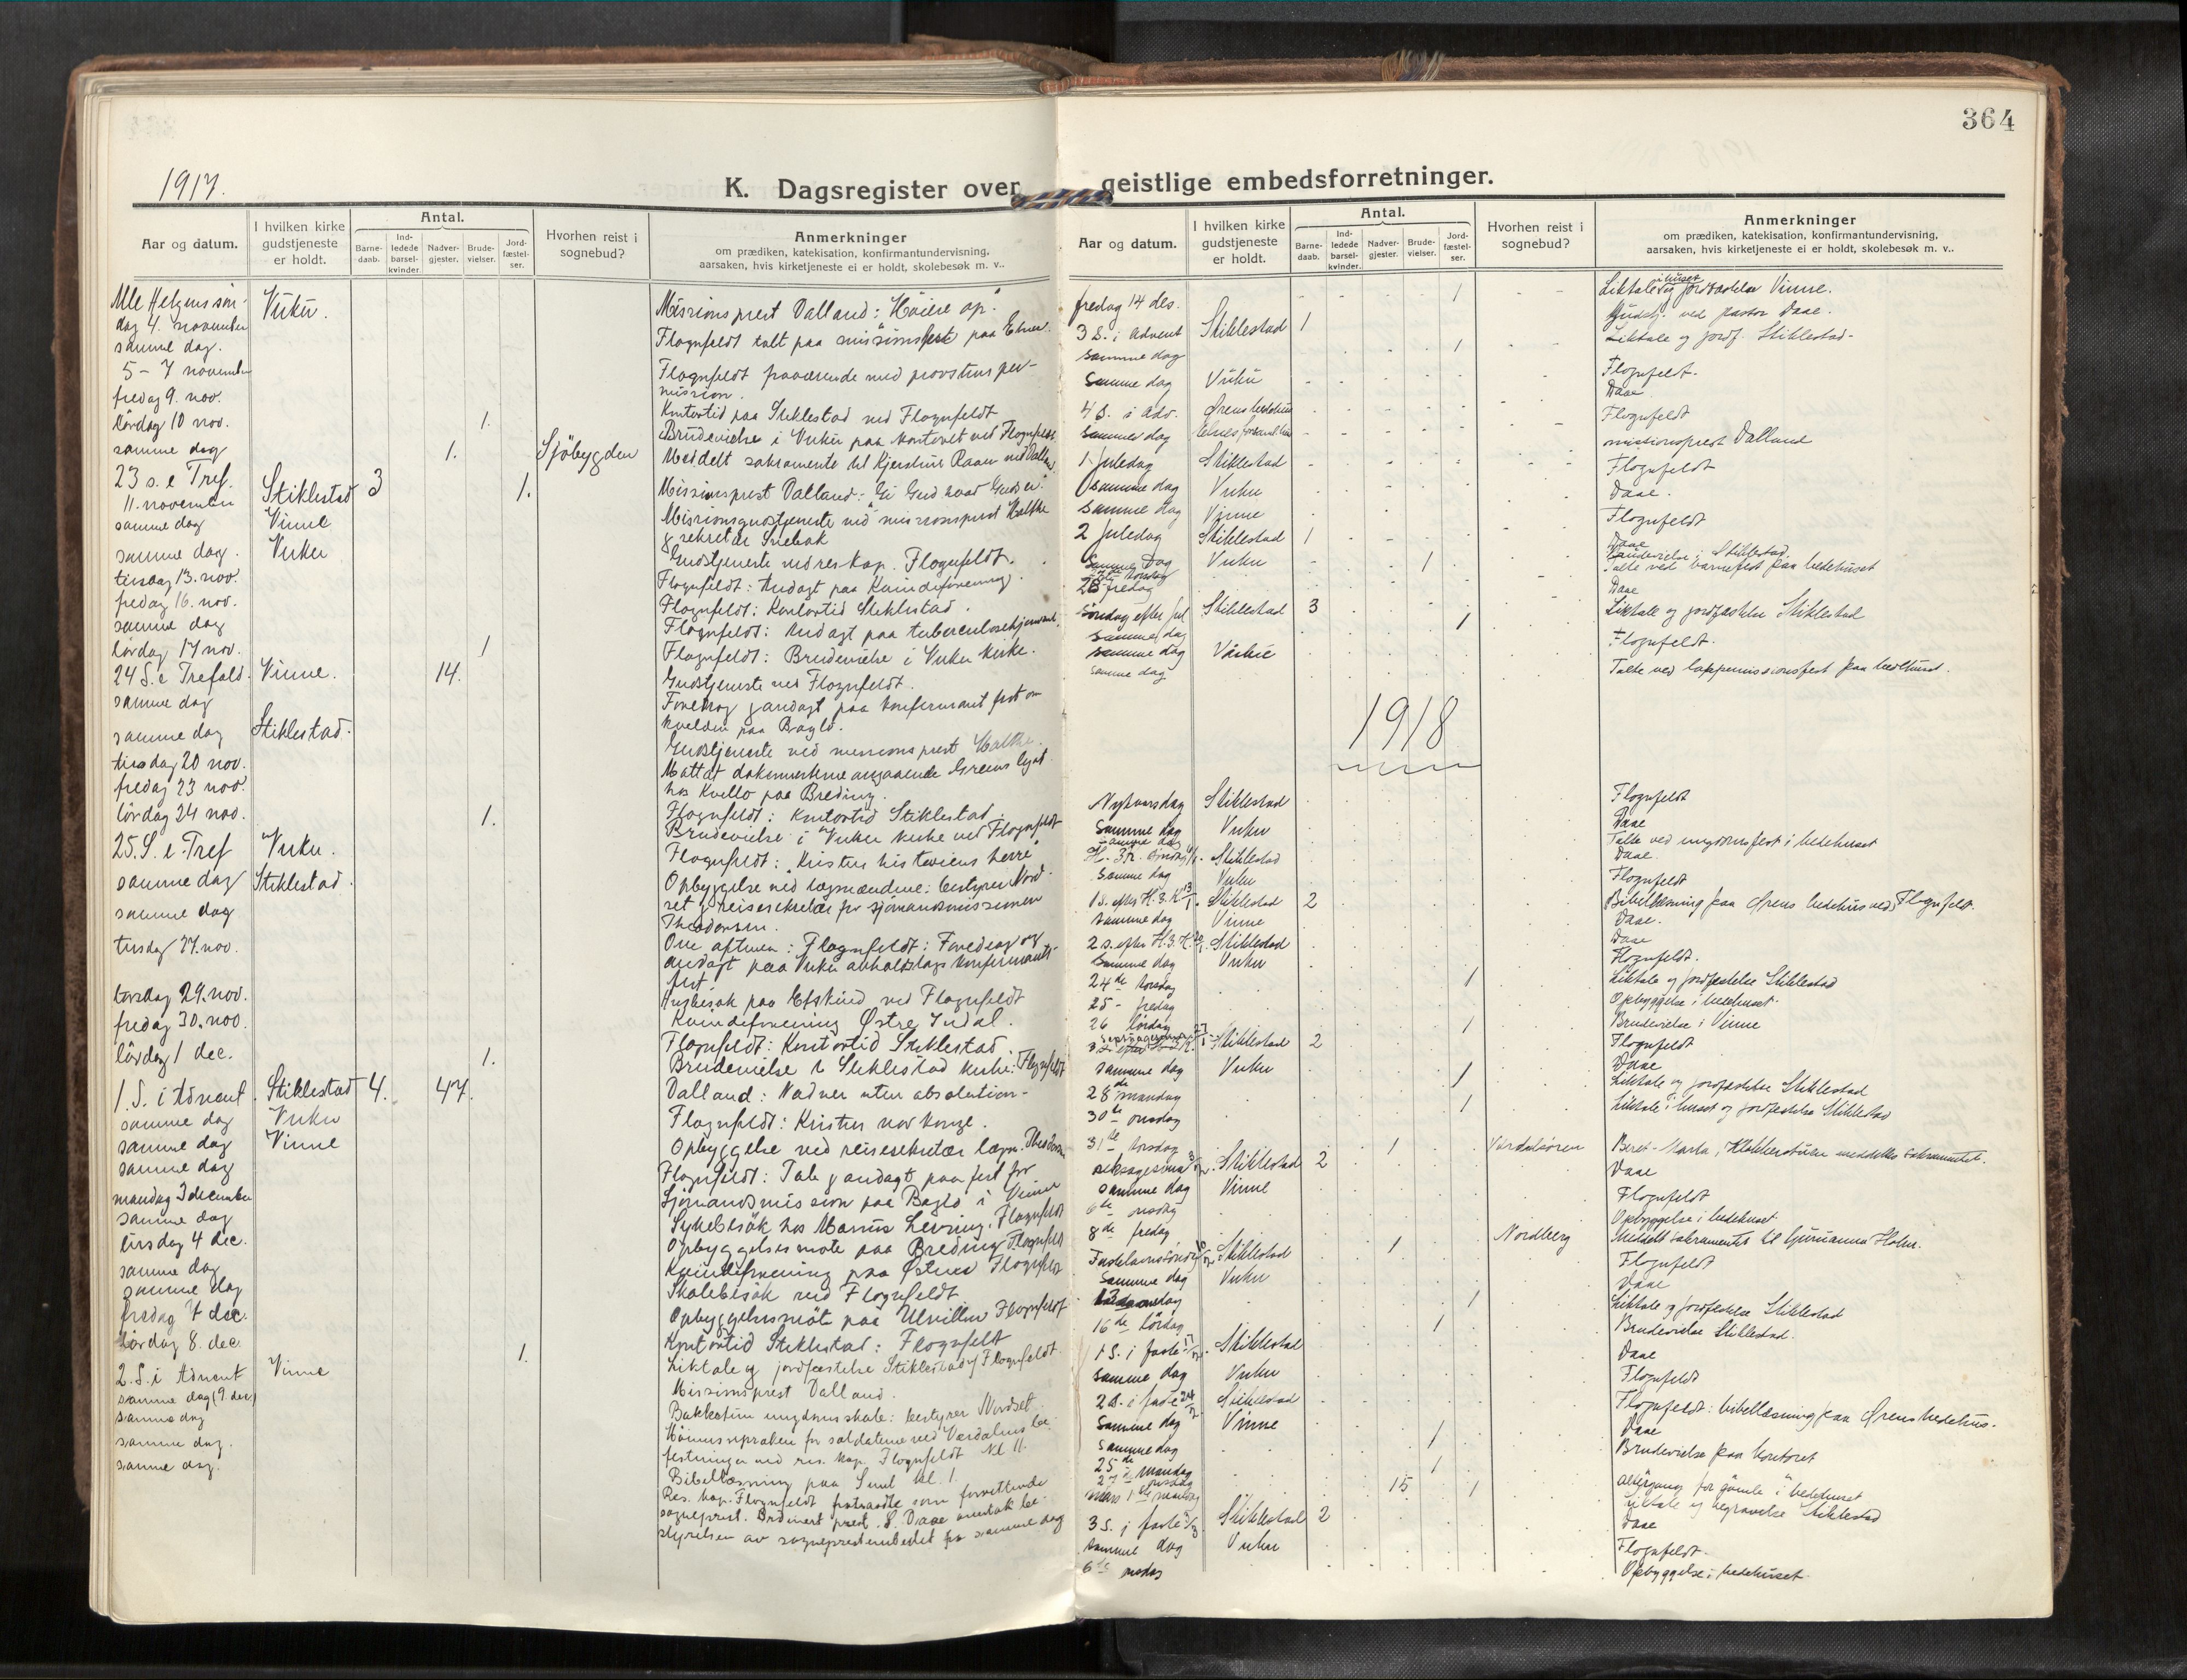 364
1917.
K. Dagsregister over geistlige embedsforretninger.
Aar og datum.
I hvilken kirke gudstjeneste er holdt.
Antal.
Barne-daab.
Ind-ledede barsel-kvinder.
Nadver-gjester.
Brude-vielser.
Jord-fæstel-ser.
Hvorhen reist i sognebud?
Anmerkninger
om prædiken, katekisation, konfirmantundervisning,
aarsaken, hvis kirketjeneste ei er holdt, skolebesøk m. v..
Alle Helgens søn- Vuku. Missionsprest Dalland: Høiere op.
dag 4. november
samme dag. Flognfeldt talt paa missionsfest paa
5 - 7 november Flognfeldt fraværende med provstens per-
mission.
fredag 9. nov. Kontortid paa Stiklestad ved Flognfeldt
lørdag 10 nov. 1. Brudevielse i Vuku paa kontoret ved Flognfeldt
samme dag 1. Sjøbygden Meddelt sakramente til
23 s. e Tref. Stiklestad 3 1. Missionsprest Dalland: Gi Gud hvad Guds er.
11. november
samme dag Vinne Missionsgudstjeneste ved missionsprest
sekretær
samme dag. Vuku Gudstjeneste ved res. kap. Flognfeldt.
tirsdag 13. nov. Flognfeldt: Andagt paa Kvindeforening.
fredag 16. nov. Flognfeldt: Kontortid Stiklestad.
samme dag Flognfeldt: Andagt paa tuberculosehjemmet.
lørdag 17 nov. 1 Flognfeldt: Brudevielse i Vuku kirke.
24 S. e Trefold. Vinne. 14. Gudstjeneste ved Flognfeldt.
samme dag Foredrag og andagt paa konfirmant fest om
kvelden paa
samme dag Stiklestad. Gudstjeneste ved missionsprest
tirsdag 20 nov. Mottat dokumenterne angaaende Greens legat
hos Kvello paa Breding.
fredag 23 nov. Flognfeldt: Kontortid Stiklestad
lørdag 24 nov. 1. Brudevielse i Vuku kirke ved Flognfeldt
25. S. e. Tref Vuku. Flognfeldt: Kristus historiens herre
samme dag Stiklestad. Opbyggelse ved lægmændene: bestyrer Nord-
set og reisesekretær for sjømandsmissionen
samme dag Theodorsen.
tirsdag 27. nov. Flognfeldt: Foredrag og
andagt paa Vuku avholdslags konfirmant-
fest.
torsdag 29. nov. Husbesøk paa ved Flognfeldt
fredag 30. nov. Kvindeforening Østre Indal.
Flognfeldt: Kontortid Stiklestad
lørdag 1 dec. 1. Brudevielse i Stiklestad kirke: Flognfeldt
1. S. i Advent. Stiklestad 4. 47. Dalland: Nadver uten absolution.
samme dag Vuku Flognfeldt: Kristus vor konge.
samme dag Vinne Opbyggelse ved reisesekretær lægm. Theodorsen
samme dag Flognfeldt: Tale og andagt paa fest for
Sjømandsmission paa i Vinne
mandag 3 december Sykebesøk hos Flognfeldt
samme dag Opbyggelsesmøte paa Breding Flognfeldt
tirsdag 4 dec. Kvindeforening paa Flognfeldt
samme dag Skolebesøk ved Flognfeldt
samme dag Opbyggelsesmøte paa Ulvillen Flognfeldt
fredag 7 dec. Kontortid Stiklestad: Flognfeldt
lørdag 8. dec. 1. Liktale og jordfæstelse Stiklestad Flognfeldt.
2. S. i Advent Vinne Missionsprest Dalland.
samme dag (9. dec) ungdomsskole: bestyrer Nordset
samme dag for soldaterne ved Værdalens be-
festninger ved res. kap. Flognfeldt kl 11.
samme dag. Bibellæsning paa kl. 1.
samme dag. Res. kap. Flognfeldt fratraadte som forrettende
sogneprest. Ordinert prest S. Daae overtok be-
styrelsen av sogneprestembedet fra samme dag
Aar og datum.
I hvilken kirke gudstjeneste er holdt.
Antal.
Barne-daab.
Ind-ledede barsel-kvinder.
Nadver-gjester.
Brude-vielser.
Jord-fæstel-ser.
Hvorhen reist i sognebud?
Anmerkninger
om prædiken, katekisation, konfirmantundervisning,
aarsaken, hvis kirketjeneste ei er holdt, skolebesøk m. v..
fredag 14 des. 1 Liktale i huset og jordfæstelse Vinne.
3 S. i Advent Stiklestad 1 Gudstj. ved pastor Daae.
samme dag 1 Liktale og jordf. Stiklestad.
Samme dag Vuku Flognfeldt.
Daae
4 S. i Adv. Ørens bedehus Flognfeldt
Samme dag missionsprest Dalland
1 Juledag Stiklestad Flognfeldt
Samme dag Vuku Daae.
Samme dag Vinne Flognfeldt
2 Juledag Stiklestad 1 Daae
Samme Dag Vuku 1 Brudevielse i Stiklestad.
torsdag Talte ved barnefest paa bedehuset
28 fredag Daae
Søndag efter Jul Stiklestad 3 1 Liktale og jordfæstelse Stiklestad
Samme dag
samme dag Vuku Flognfeldt.
samme dag Talte ved lappemissionsfest paa bedehuset.
1918
Nytaarsdag Stiklestad Flognfeldt
Samme dag Vuku Daae
samme dag Talte ved ungdomsfest i bedehuset
Stiklestad Daae.
Samme dag Vuku Flognfeldt
1 S. efter H. 3. K. 13/1. Stiklestad 2 Bibellæsning paa Ørens bedehus ved Flognfeldt.
samme dag Vinne Daae.
2 S. efter H. 3. K. 20/1. Stiklestad Daae
Samme dag Vuku Flognfeldt.
24de torsdag 1 Liktale og jordfæstelse Stiklestad
25 - fredag Opbyggelse i bedehuset.
26 lørdag 1 Brudevielse i Vinne
Septuagesima 27/1 Stiklestad 2 Flognfeldt
samme dag Vuku Daae
28de mandag 1 Liktale og jordfæstelse Stiklestad
30te onsdag 1 Liktale i huset og jordfæstelse Stiklestad
31te torsdag 1 Værdalsøren Beret-Marta, meddeltes sakramentet.
seksagesima 3/2. Stiklestad 2 Daae
samme dag Vinne Flognfeldt
6te onsdag Opbyggelse i bedehuset.
8de fredag 1 Nordberg Meddelt sakramentet til
Fastelavnssøndag 10/2 Stiklestad Flognfeldt
Samme dag Vuku Daae
1 Liktale og jordfæstelse Stiklestad
16de lørdag 1 Brudevielse Stiklestad.
1 S. i faste 17/2. Stiklestad Daae
samme dag Vuku Flognfeldt
2 S. i faste 24/2 Stiklestad Flognfeldt: bibellæsning paa Ørens bedehus.
Samme dag Vinne Daae
Samme dag 1 Brudevielse paa kontoret
25de mandag 1
27de onsdag 15 Altergang for gamle i bedehuset
mars 1 Liktale og begravelse Stiklestad
3 S. i faste 3/3. Stiklestad 2 Daae
samme dag Vuku Flognfeldt.
6te onsdag Opbyggelse i bedehuset.